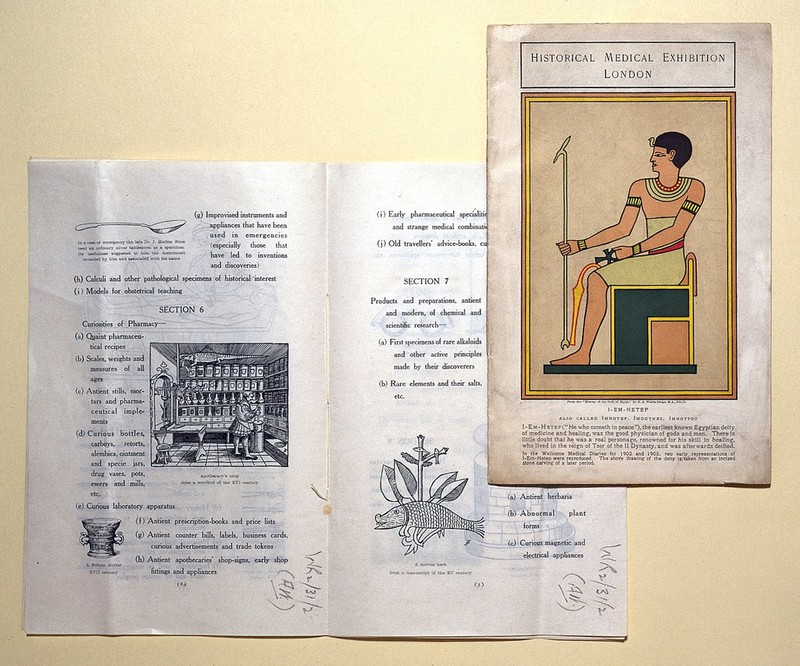 (g) Improvised instruments and
appliances that have been
used in emergencies
(especially those that
have led to inventions
and discoveries)
In a case of emergency the late Dr. J. Marion Sims
used an ordinary silver tablespoon as a speculum.
Its usefulness suggested to him the instrument
invented by him and associated with his name
(h) Calculi and other pathological specimens of historical interest
(i) Models for obstetrical teaching
SECTION 6
Curiosities of Pharmacy—
(a) Quaint pharmaceu-
tical recipes
(b) Scales, weights and
measures of all
ages
(c) Antient stills, mor-
tars and pharma-
ceutical imple-
ments
(d) Curious bottles,
carboys, retorts,
alembics, ointment
and specie jars,
drug vases, pots,
ewers and mills,
etc.
Apothecary's shop
from a woodcut of the XVI century
(e) Curious laboratory apparatus
(f) Antient prescription-books and price lists
(g) Antient counter bills, labels, business cards,
curious advertisements and trade tokens
(h) Antient apothecaries' shop-signs, early shop
fittings and appliances
XVII century
WA2/31/2
(AH)
(i) Early pharmaceutical specialiti
and strange medical combinati
(j) Old travellers' advice-books, cu
SECTION 7
Products and preparations, antient
and modern, of chemical and
scientific research—
(a) First specimens of rare alkaloids
and other active principles
made by their discoverers
(b) Rare elements and their salts,
etc.
from a manuscript of the XV century
(a) Antient herbaria
(b) Abnormal plant
forms
(c) Curious magnetic and
electrical appliances
WA2/31/2
(AH)
HISTORICAL MEDICAL EXHIBITION
LONDON
I-EM-HETEP
ALSO CALLED IMHOTEP, IMOUTHES, IMHOTPOU
I-EM-HETEP ("He who cometh in peace"), the earliest-known Egyptian deity
of medicine and healing, was the good physician of gods and men. There is
little doubt that he was a real personage, renowned for his skill in healing,
who lived in the reign of Tser of the III Dynasty, and was afterwards deified.
In the Wellcome Medical Diaries for 1902 and 1905, two early representations of
I-Em-Hetep were reproduced. The above drawing of the deity is taken from an incised
stone carving of a later period.